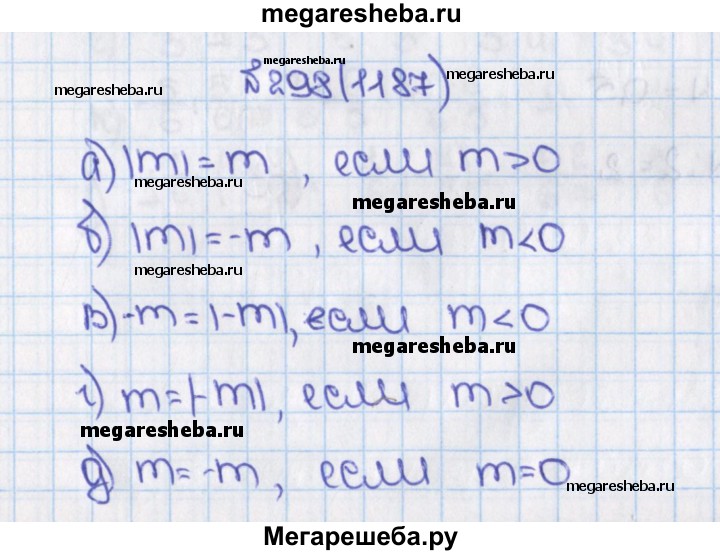 megaresheba.ru
megaresheba.ru
№298(1187)
megaresheba.ru
megaresheba.ru
а) |m| = m , если m>0
megaresheba.ru
megaresheba.ru
б) |m| = -m , если m<0
megaresheba.ru
в) -m = |-m|, если m<0
megaresheba.ru
г) m = |-m|, если m>0
megaresheba.ru
д) m = -m , если m=0
megaresheba.ru
Мегарешеба.ру